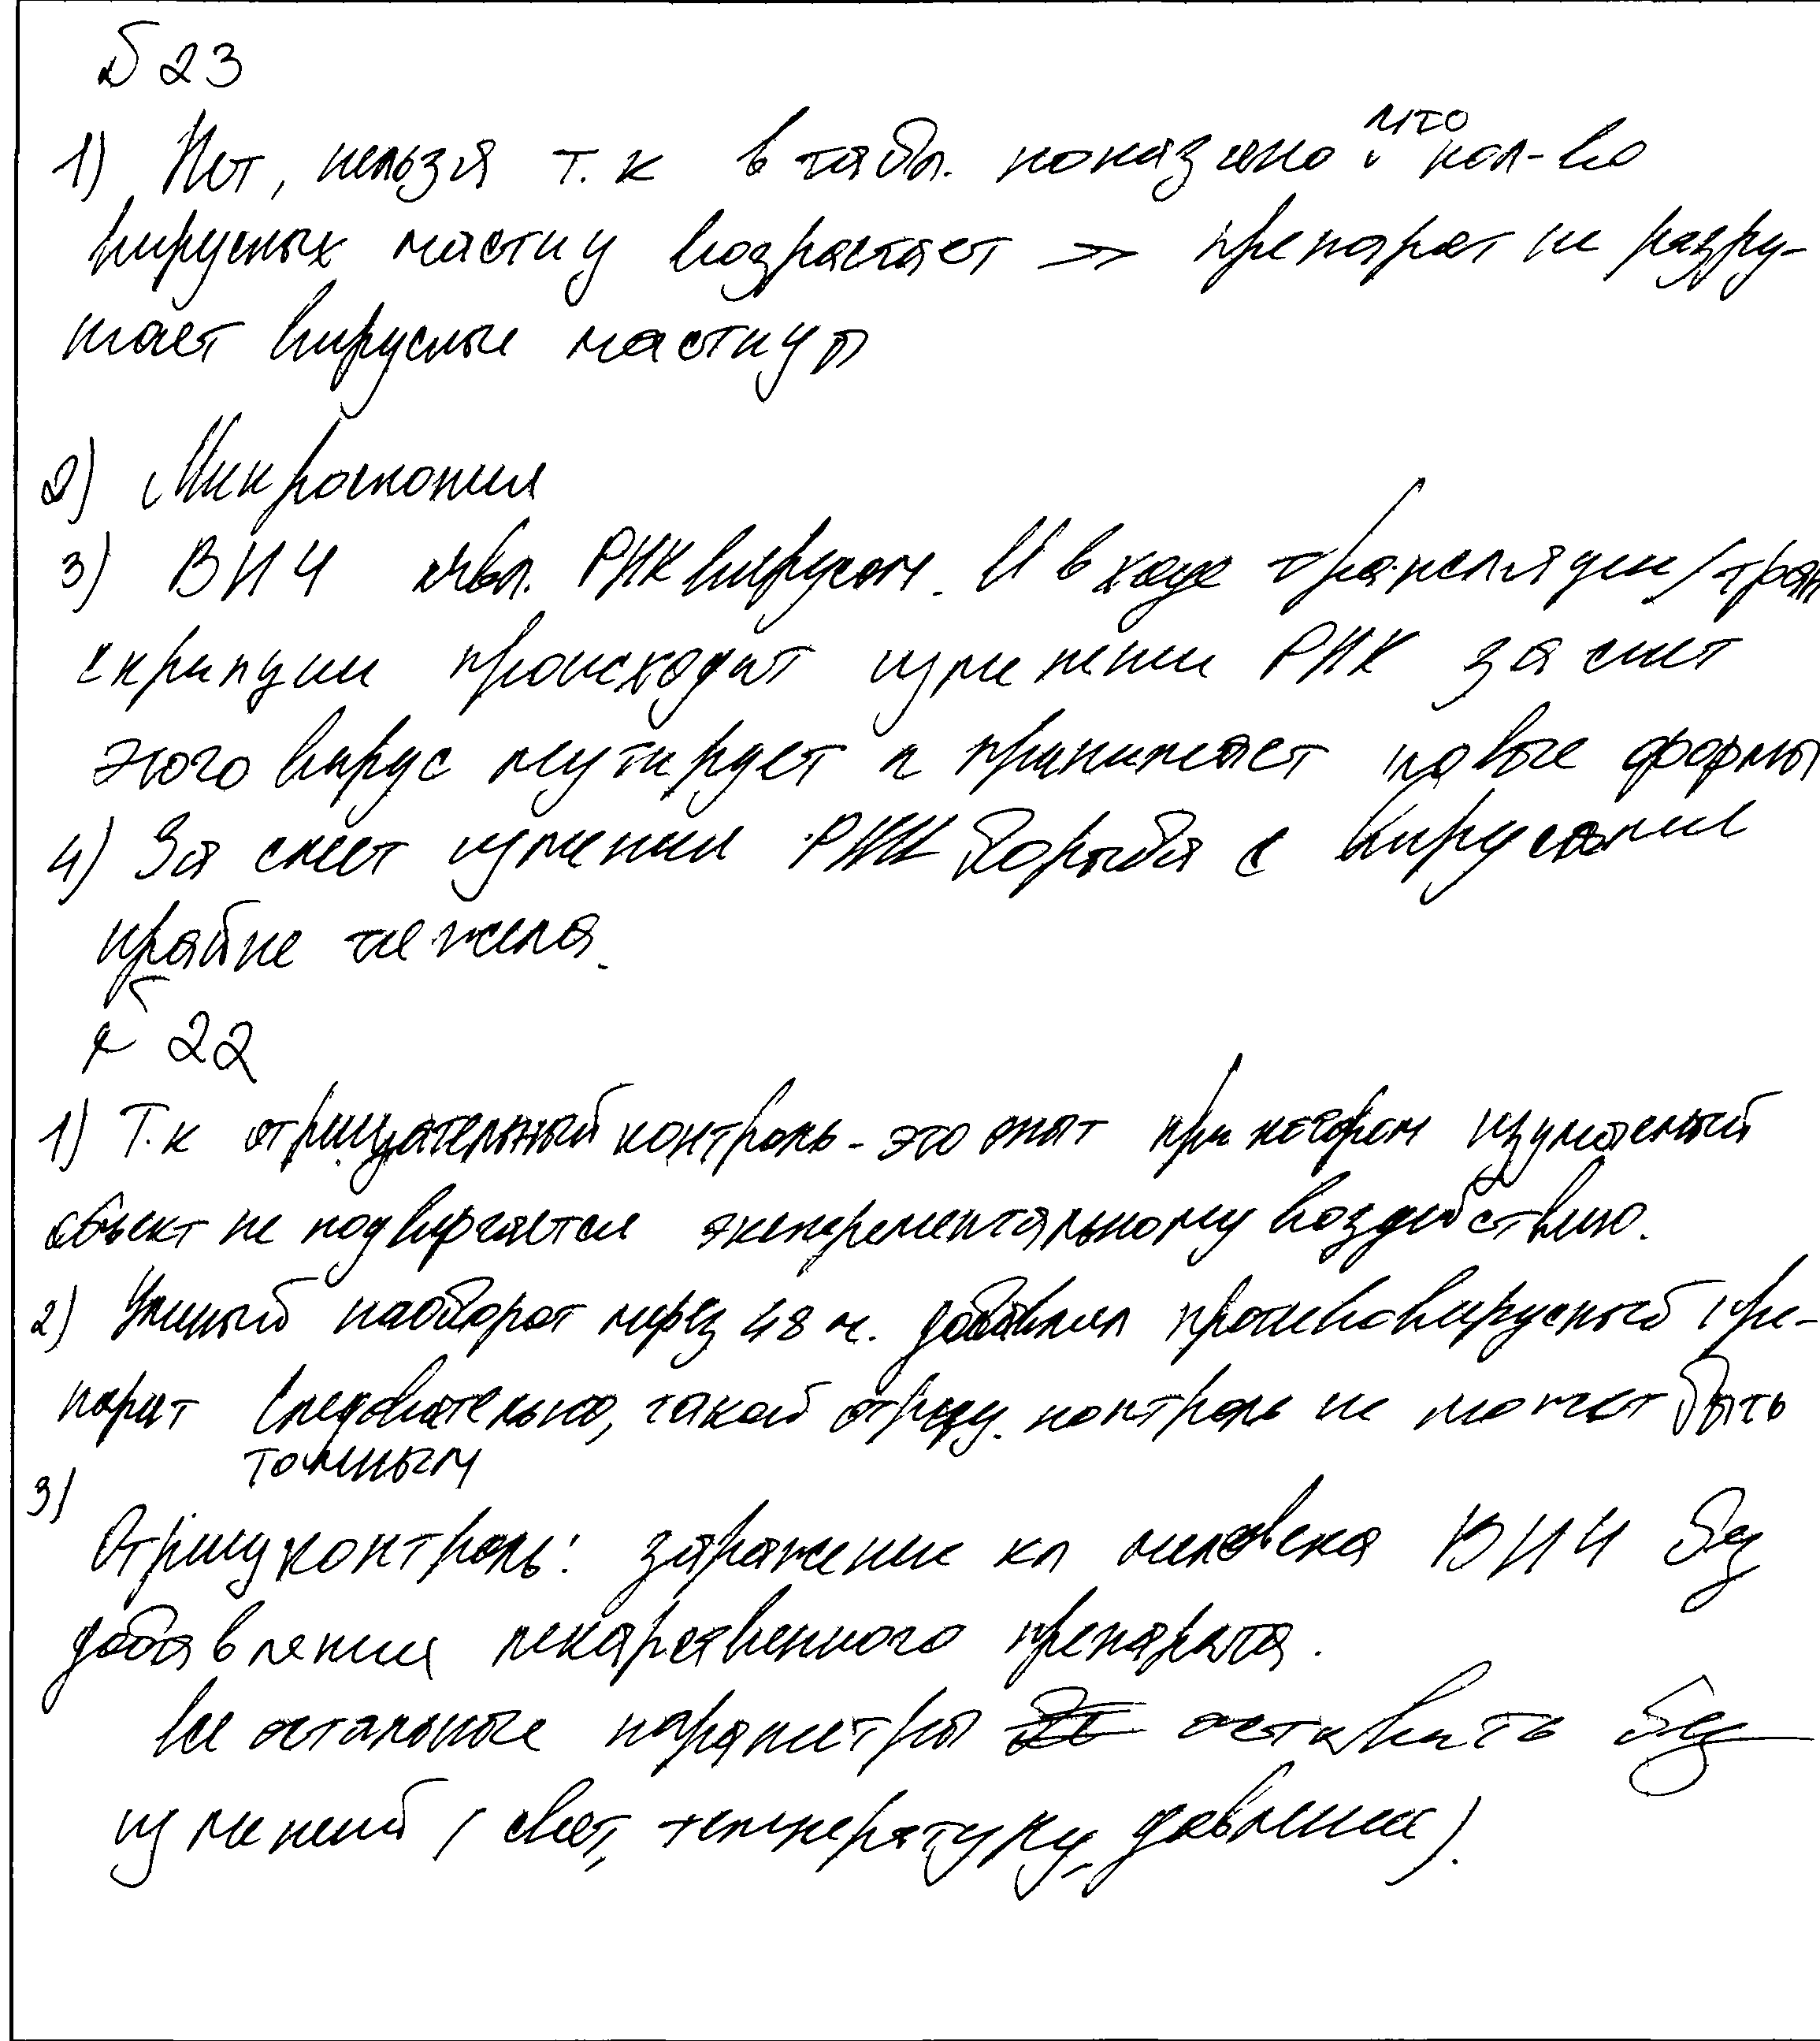 № 23
1) Нет, нельзя т.к в табл. показано что кол-во
вирусных частиц возрастает => препарат не разру-
шает вирусные частицы
2) Микроскопия
3) ВИЧ явл. РНК вирусом. И в ходе трансляции/тран
скрипции происходит изменении РНК за счет
этого вирус мутирует и принимает новые формы
4) За счет изменении РНК борьба с вирусами
крайне тежела.
22
1) Т.к отрицательный контроль - это опыт при котором изучаемый
объект не подвиргается эксперементальному воздействию.
2) Ученый наоборот через 48 ч. добавлял противовирусный пре-
парат Следовательно, такой отриц. контроль не может быть
точным
3)
Отриц контроль: заражение кл человека ВИЧ без
добавления лекарственного препарата.
Все остальные параметры оставить без
изменений (свет, температуру, давление).